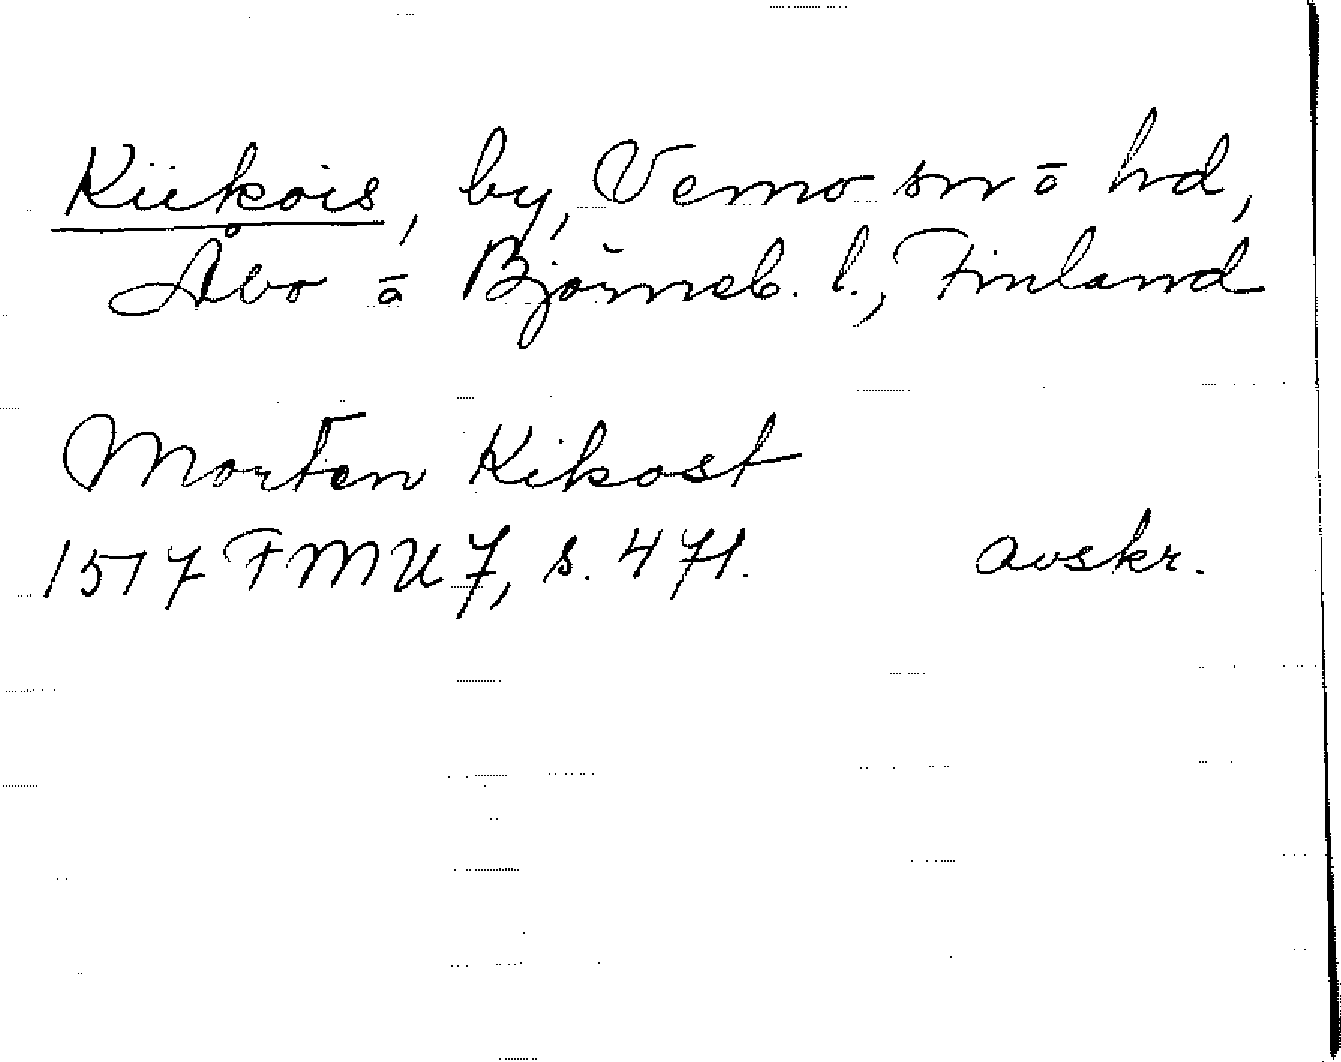 Kiikois, by, Vemo sn ō hd,
Åbo ō Björneb. l., Finland
Morten Kikost
1517 FMU 7, s. 471. avskr.